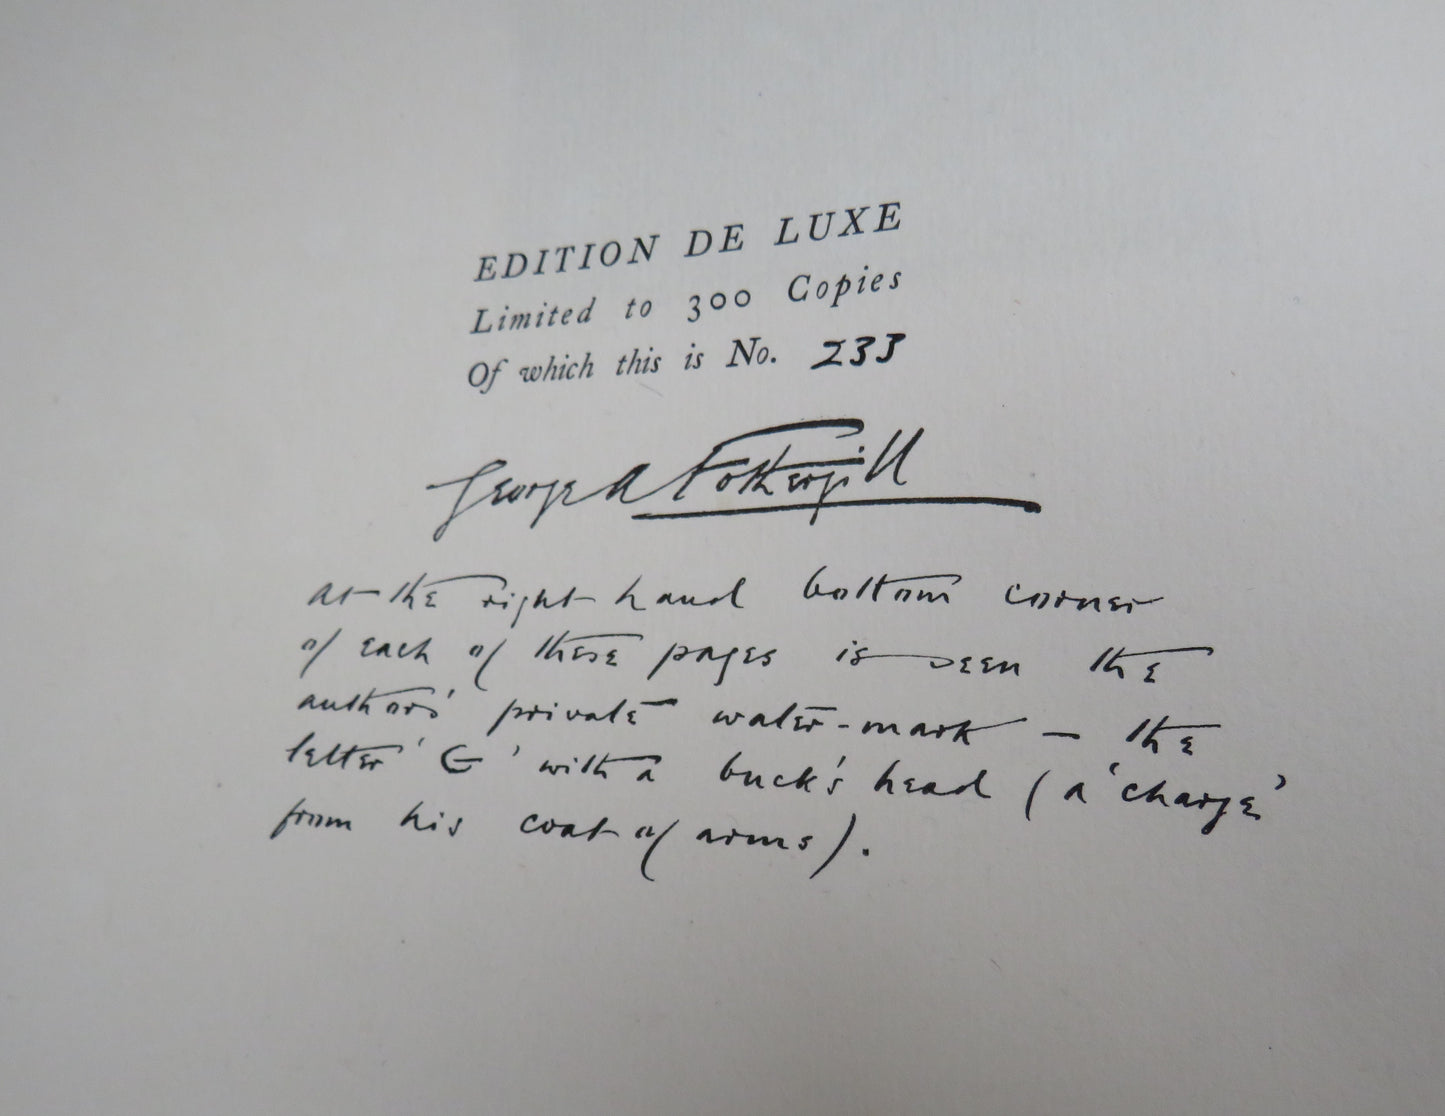 EDITION DE LUXE
Limited to 300 Copies
Of which this is No. 233
George A Fothergill
At the right hand bottom corner
of each of these pages is seen the
author's private water-mark — the
letter 'G' with a buck's head (a 'charge'
from his coat of arms).